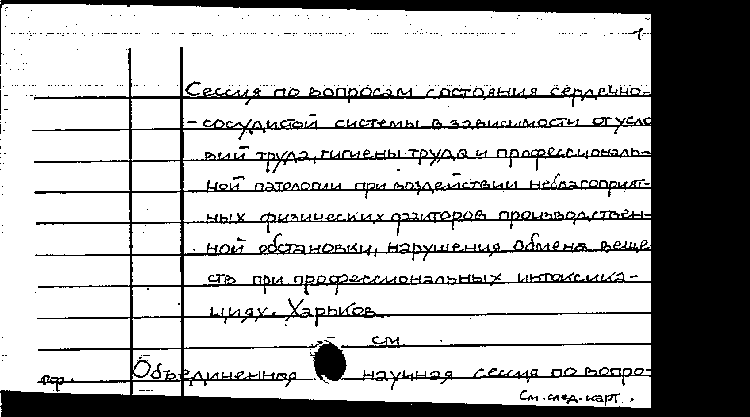 1
Сессия по вопросам состояния сердечно-
-сосудистой системы в зависимости от усло
вий труда, гигиены труда и профессиональ-
ной патологии при воздействии неблагоприят-
ных физических факторов производствен-
ной обстановки, нарушения обмена веще
ств при профессиональных интоксика-
циях. Харьков.
см.
Объединенная научная сессия по вопро-
см. след. карт.